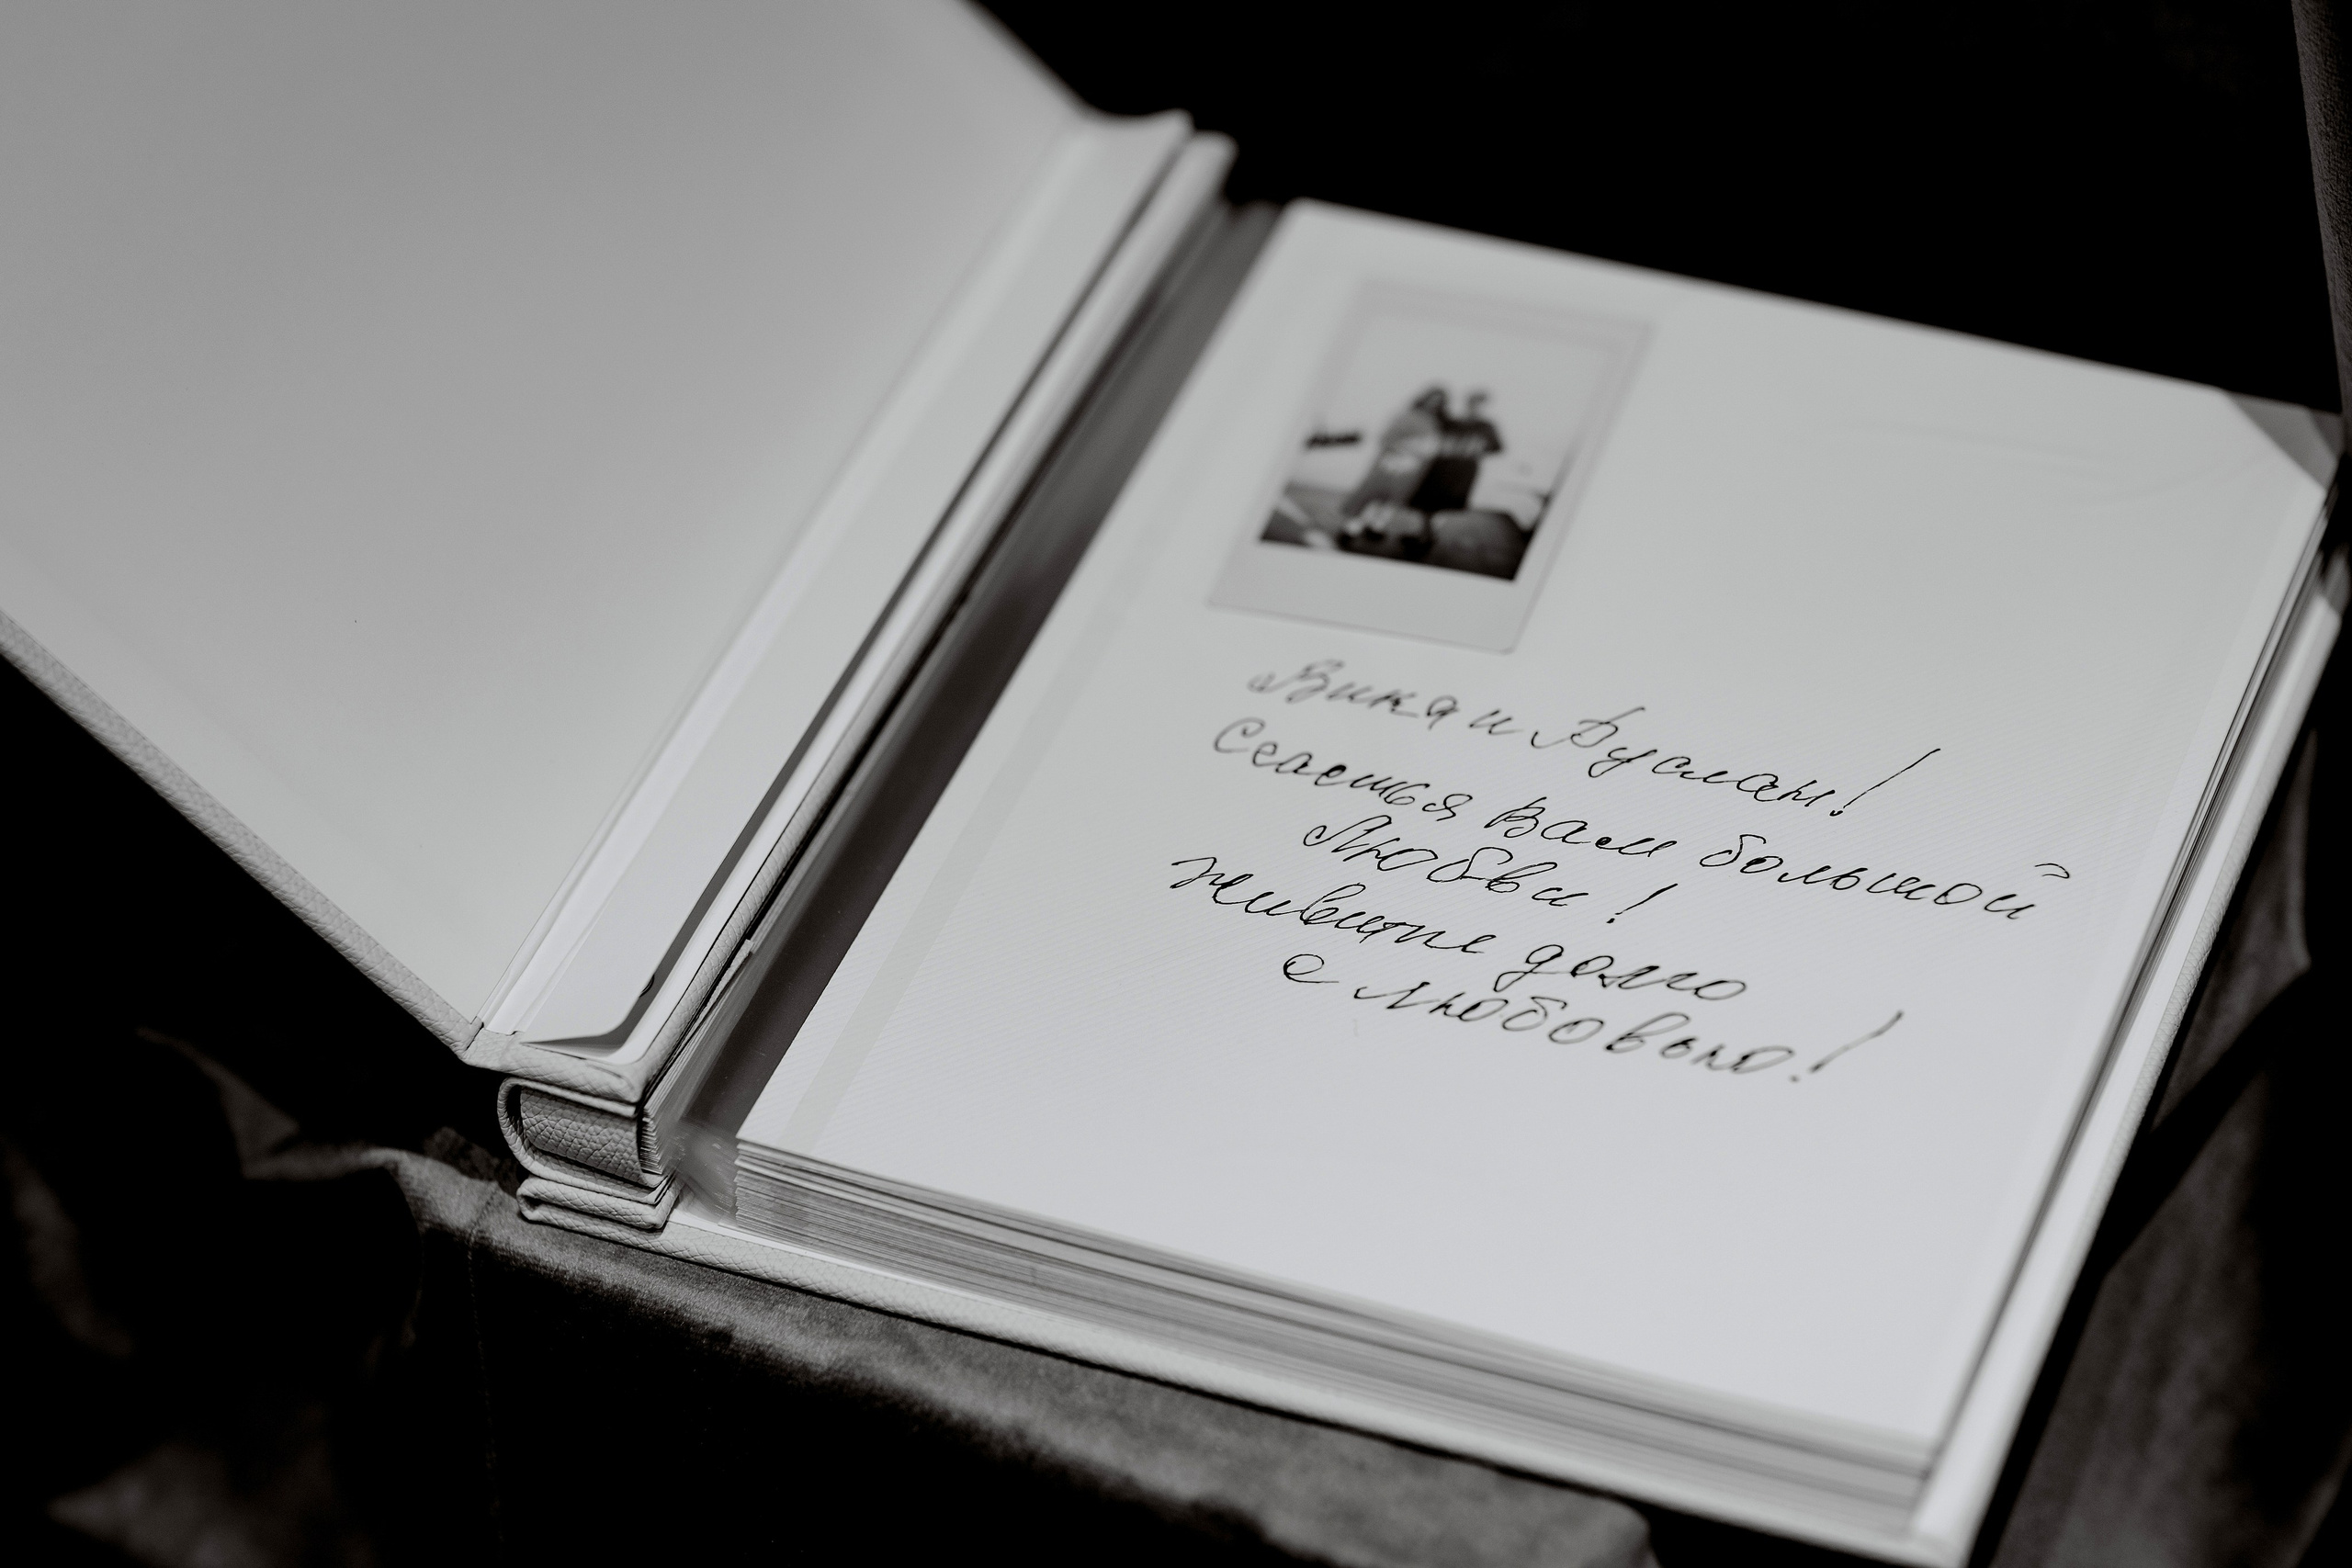 Вика и Руслан!
Счастья Вам большой
Любви!
живите долго
с любовью!